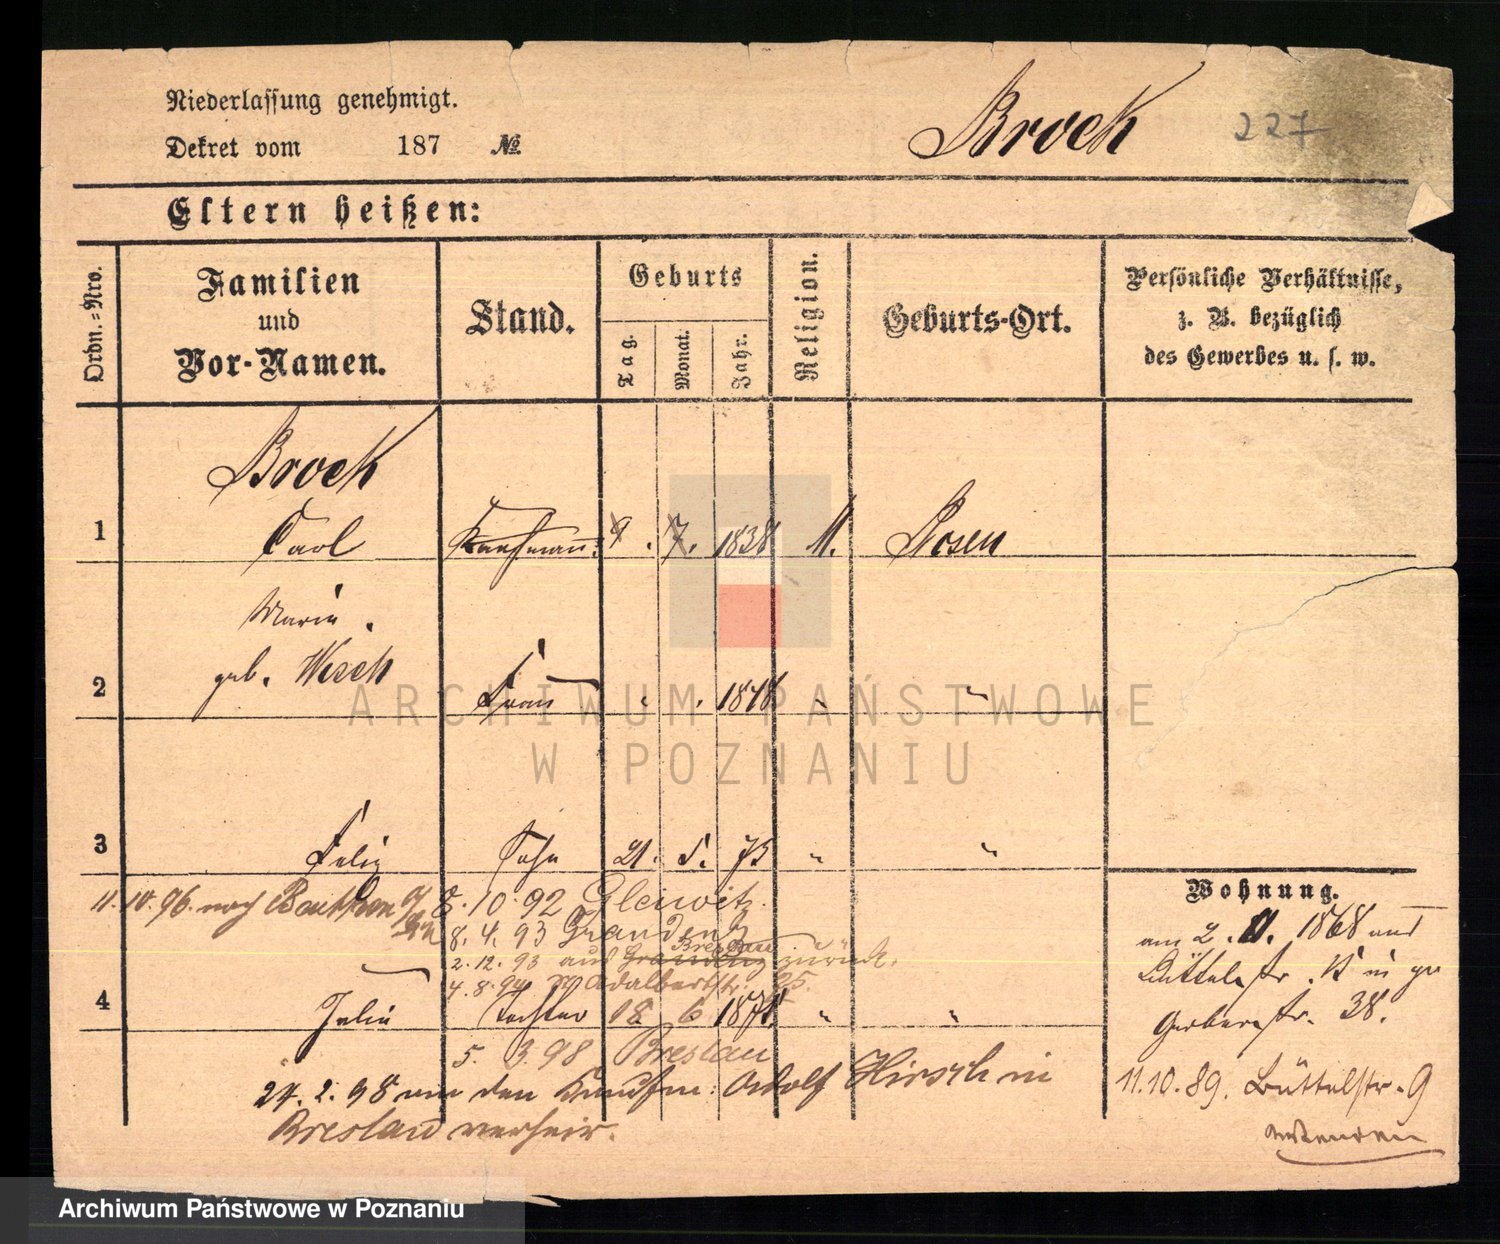 Niederlassung genehmigt.
Dekret vom 187 №
Brock 227
Eltern heißen:
Ordn.-Nro.
Familien
und
Vor-Namen.
Stand.
Geburts
Tag.
Monat.
Jahr.
Religion.
Geburts-Ort.
Persönliche Verhältnisse,
z. B. bezüglich
des Gewerbes u. s. w.
Brock
1 Carl Kaufmann 9. 7. 1838 M. Posen
Marie
geb.
2 Frau 1848 "
3 Felix Sohn 21. 5. 75 " "
Wohnung.
11.10.96. nach Beuthen 8.10.92 Gleiwitz.
8.4.93 Graudenz
Breslau
2.12.93 aus Graudenz zurück.
4.8.94 Adalbertstr. 25.
am 2. 11. 1868 aus
Büttelstr. 15 in
Gerberstr. 38.
4 Tochter 18 6 187 " "
5. 3.98 Breslau
2. 98 an den Kaufm: Adolf Hirsch in
Breslau verheir.
11.10.89. Büttelstr. 9
ARCHIWUM PAŃSTWOWE
W POZNANIU
Archiwum Państwowe w Poznaniu